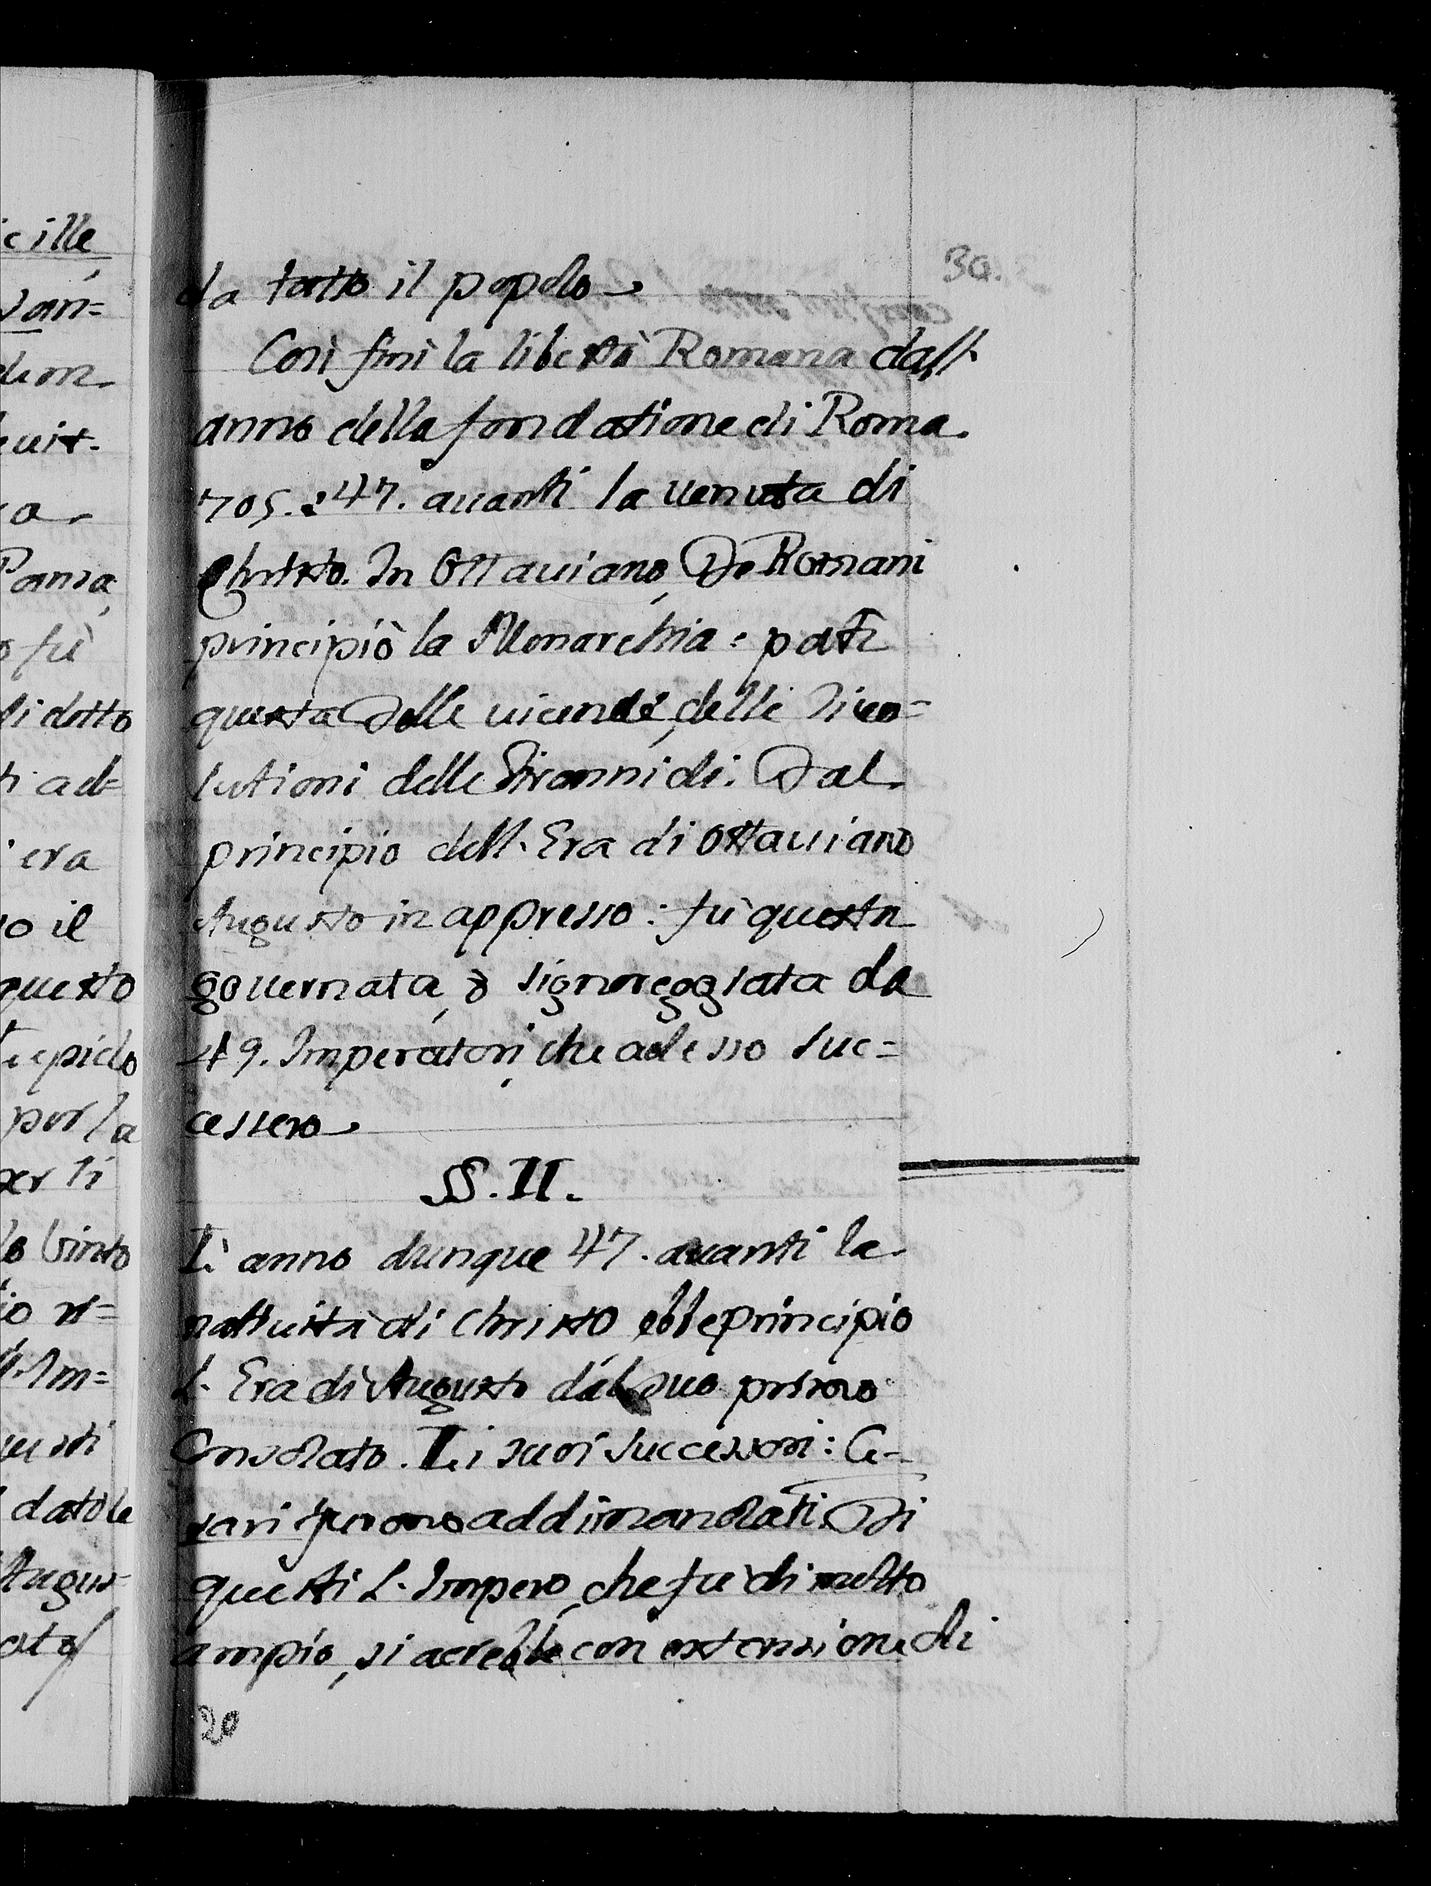 30.
da tutto il popolo
Così finì la libertà Romana dall'
anno della fondatione di Roma
705. e 47. avanti la venuta di
Christo. In Ottaviano, De Romani
principiò la Monarchia: patì
questa delle vicende, delle rivo=
lutioni delle Tirannidi. Dal
principio dell'Era di Ottaviano
Augusto in appresso: fù questa
governata, ò signoreggiata da
49. Imperatori, che adesso suc=
cessero
§. II.
L'anno dunque 47. avanti la
natività di Christo ebbe principio
L'Era di Augusto dal suo primo
Consolato. Li suoi successori: Ce-
sari furono addimandati. Di
questi L'Impero, che fù di molto
ampio, si acrebbe con extensione di
20
cille,
van=
ca
Pansa,
fù
di detto
ad=
era
il
questo
Lepido
per la
per ti
Vinto
Im=
dato le
Augus-